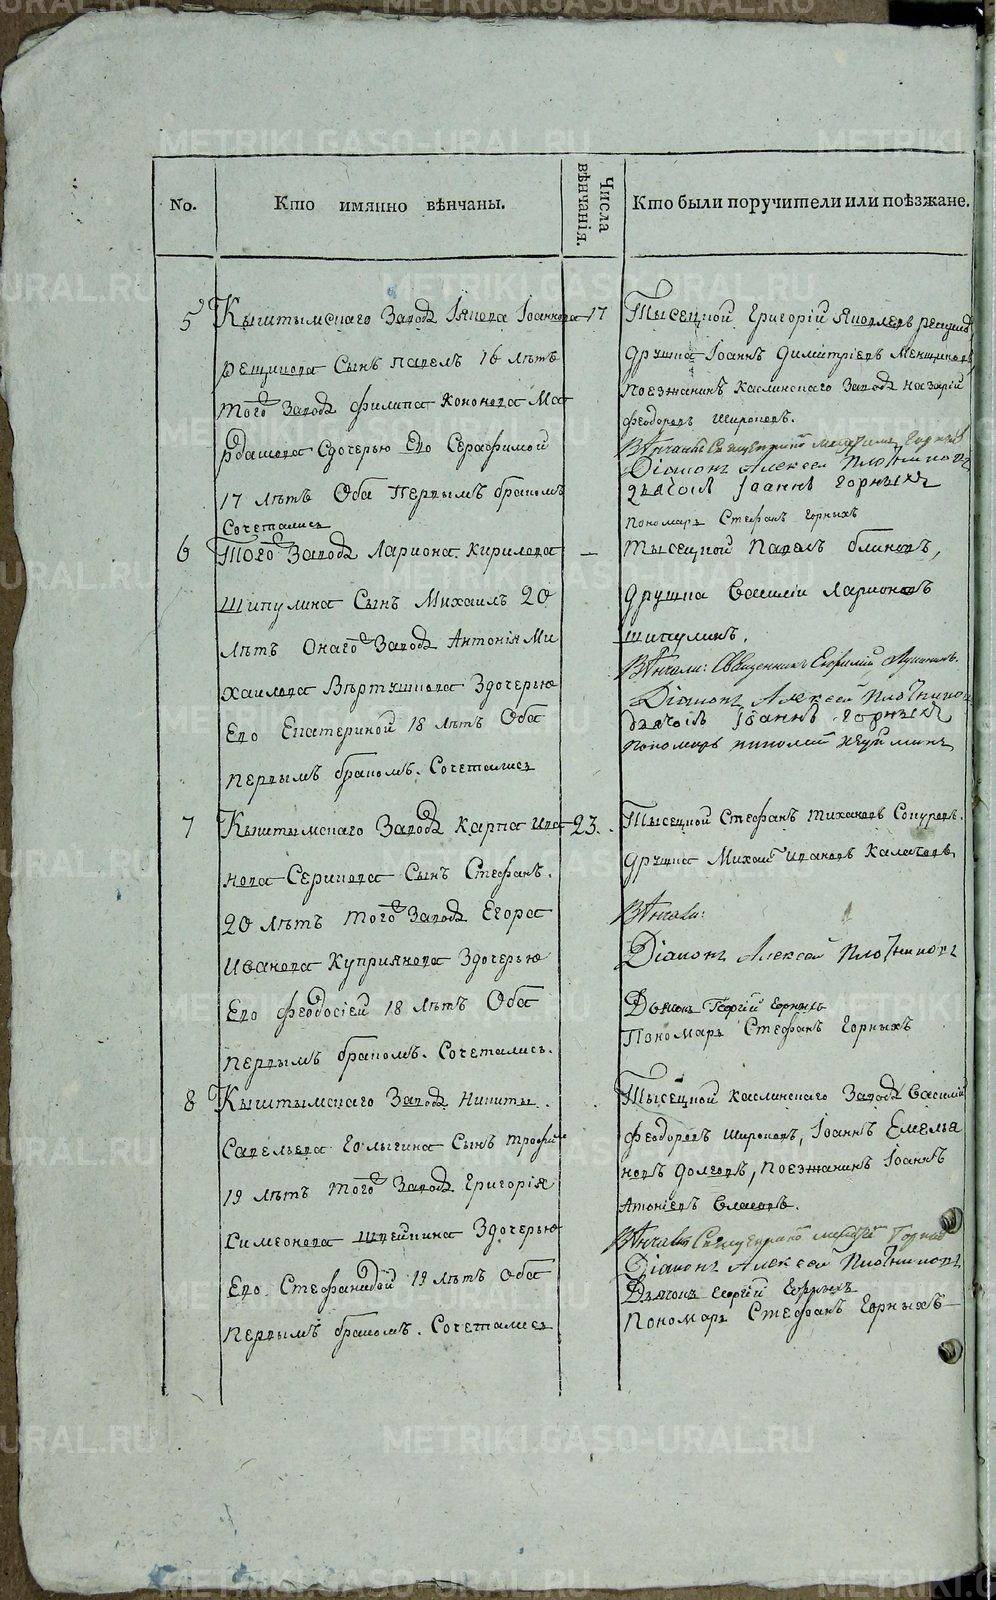 METRIKI.GASO-URAL.RU
No.
Кто имянно вѣнчаны.
Числа вѣнчанія.
Кто были поручители или поѣзжане.
5
Кыштымскаго Завода Іякова Іоаннова
17
рещикова Сынъ павелъ 16 лѣтъ
того Завода филипа Кононова Ма
Сдочерью Его Серафимой
17 лѣтъ Оба Первымъ бракомъ
Сочетались
Тысецкой Григорій Яковлевъ
дружка Іоаннъ Димитріевъ
поезжанинъ Каслинскаго Завода назарій
феодоровъ широковъ.
Діаконъ Алексей Плотниковъ
дьячокъ Іоаннъ Горныхъ
пономарь Стефанъ Горныхъ
6
Того Завода Лариона Кирилова
—
Шипулина Сынъ Михаилъ 20
лѣтъ Онаго Завода Антонія Ми
хаилова Вѣртушкова Здочерью
Его Екатериной 18 лѣтъ Оба
первымъ бракомъ. Сочетались
Тысецкой Павелъ блиновъ,
дружка Василіи Ларионовъ
шипулинъ.
Вѣнчали: Священникъ
Діаконъ Алексей Плотников
дьячокъ Іоаннъ Горныхъ
пономарь николай
7
Кыштымскаго Завода Карпа Ива
23.
нова Серикова Сынъ Стефанъ.
20 лѣтъ того Завода Егора
Иванова Куприянова Здочерью
Его феодосіей 18 лѣтъ Оба
первымъ бракомъ. Сочетались.
Тысецкой Стефанъ тихановъ Сопуровъ.
дружка Михаил Ивановъ Калачовъ
Вѣнчали:
Діаконъ Алексей Плотниковъ
Дьячокъ Георгій Горныхъ
Пономарь Стефанъ Горныхъ
8
Кыштымскаго Завода Никиты
Савельева Голыгина Сынъ трофи
19 лѣтъ того Завода Григорія
Симеонова Здочерью
Его Стефанидой 19 лѣтъ Оба
первымъ бракомъ. Сочетались
Тысецкой Каслинскаго Завода Василій
феодоровъ широковъ, Іоаннъ Емелья
новъ долговъ, поезжанинъ Іоаннъ
Атоніевъ Власовъ.
Діаконъ Алексей Плотниковъ
Дьячокъ Георгій Горныхъ
Пономарь Стефанъ Горныхъ